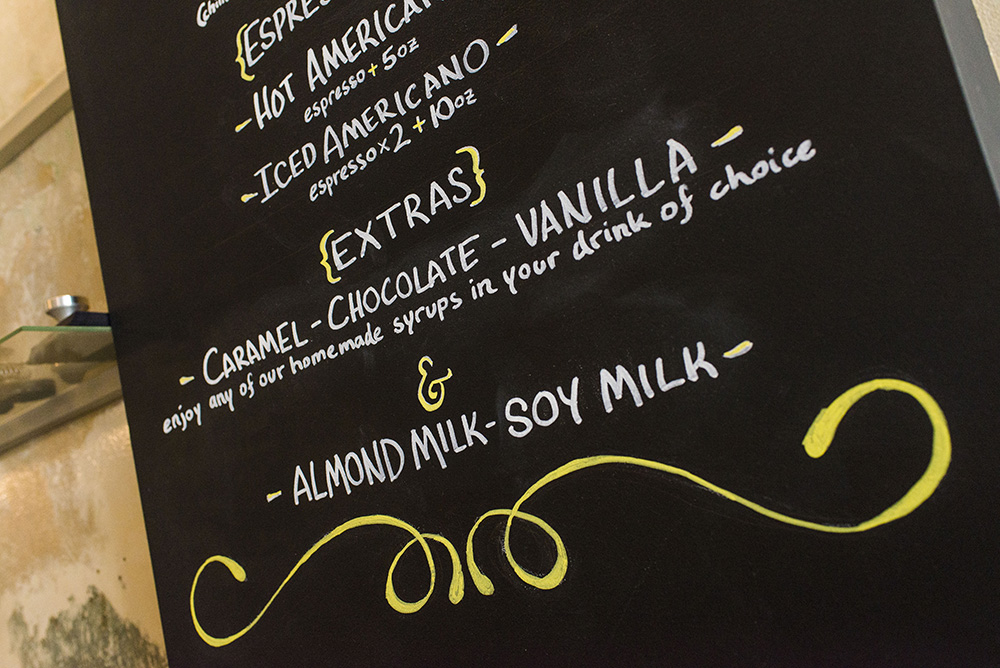 {ESPRES
HOT AMERICAN
espresso + 5oz
- ICED AMERICANO -
espresso x 2 + 10oz
{EXTRAS}
- CARAMEL - CHOCOLATE - VANILLA -
enjoy any of our homemade syrups in your drink of choice
&
- ALMOND MILK - SOY MILK -